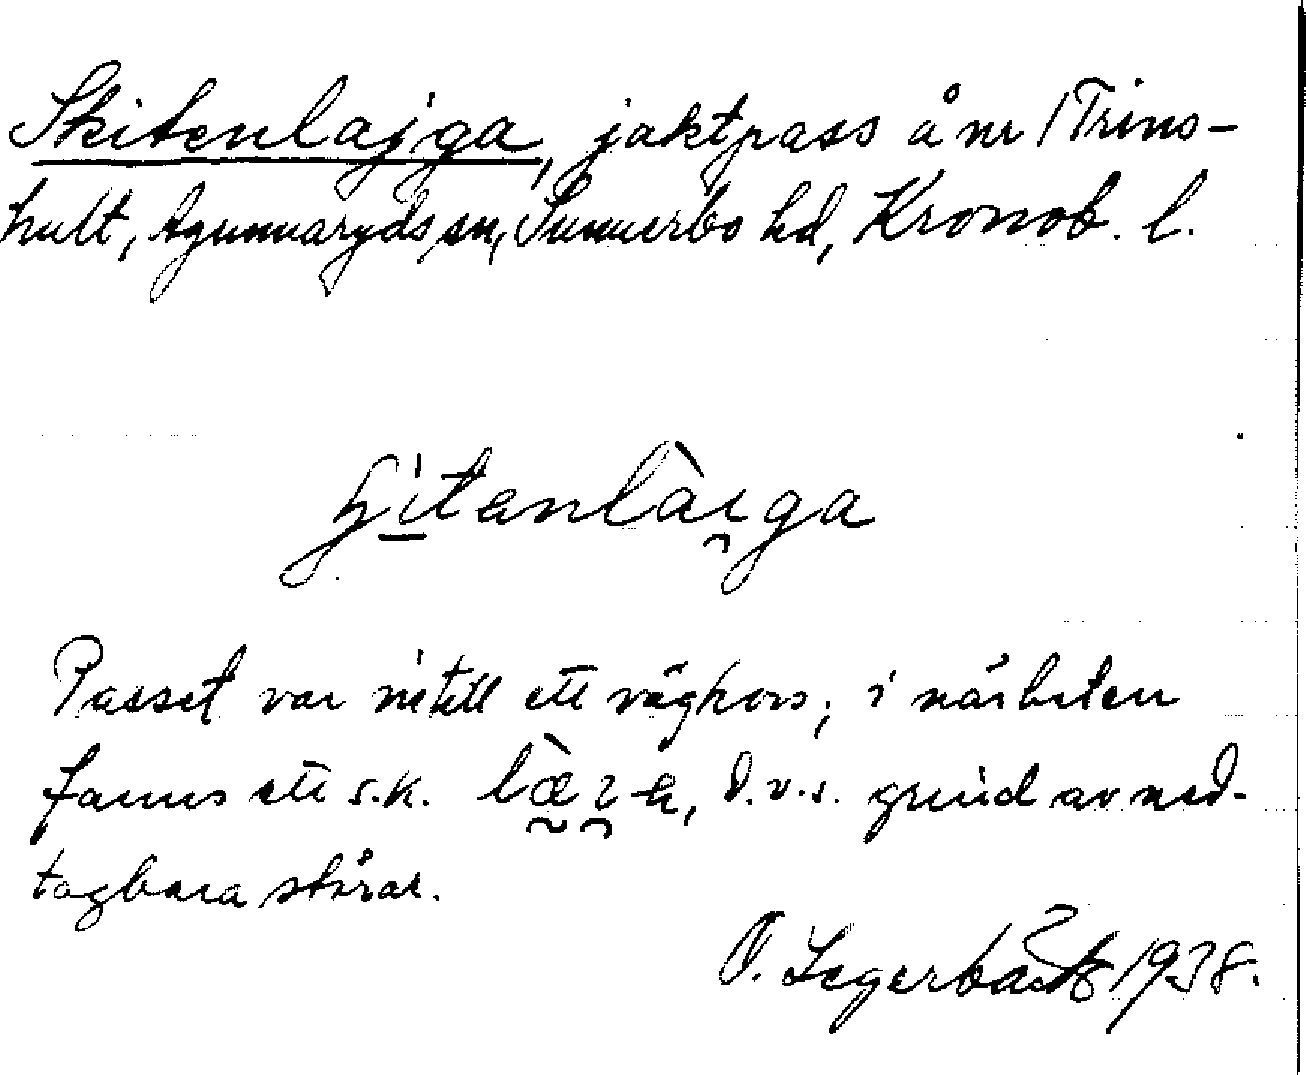 Skitenlajga, jaktpass å nr 1 Trins-
hult, Agunnaryds sn, Sunnerbo hd, Kronob. l.
Passet var intill ett vägkors; i närheten
fanns ett s.k. d.v.s. grind av ned-
tagbara störar.
1938.